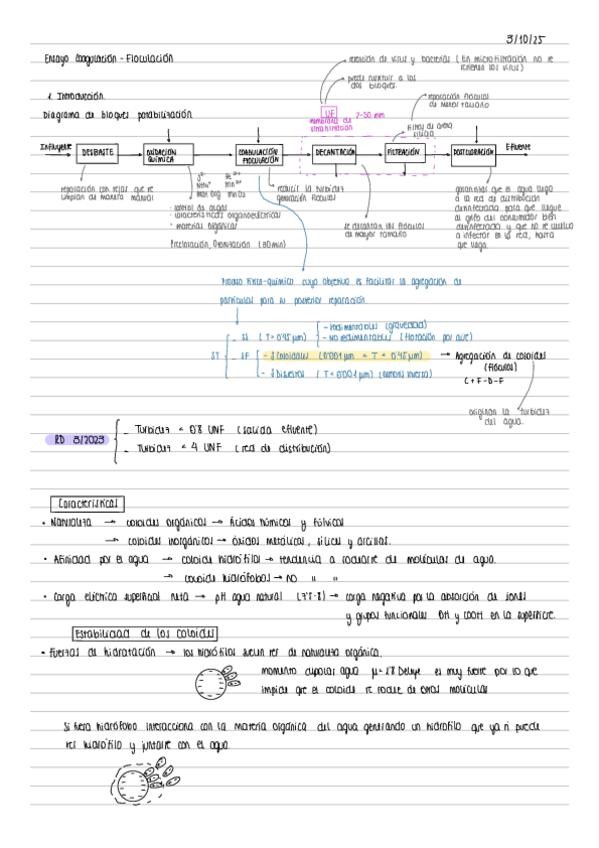 3/10/25
Ensayo Coagulación - Floculación
retención de virus y bacterias (En microfiltración no se retienen los virus)
puede sustituir a los dos bloques.
1. Introducción.
separación flóculos de menor tamaño
Diagrama de bloques potabilización
UF 2-50 nm
membrana de ultrafiltración
filtros de arena
Influyente
DESBASTE
OXIDACIÓN QUÍMICA
COAGULACIÓN FLOCULACIÓN
DECANTACIÓN
FILTRACIÓN
POSTCLORACIÓN
Efluente
separación con rejas que se limpian de manera manual
Mat Org
· control de algas
· características organolépticas
· materia orgánica
Precloración, Ozonización (30 min)
reducir la turbidez
generación flóculos
se decantan los flóculos de mayor tamaño
garantizar que el agua llega
a la red de distribución
desinfectada para que llegue
al grifo del consumidor bien
desinfectada y que no se vuelva
a infectar en la red, hasta
que llega.
Proceso físico-químico cuyo objetivo es facilitar la agregación de
partículas para su posterior separación
ST
- SS (T > 0'45 µm)
- sedimentables (gravedad)
- NO sedimentables (flotación por aire)
- SF
- S Coloidales (0'001 µm < T < 0'45 µm) → Agregación de coloides
(flóculos)
C + F - D - F
- S Disueltos (T < 0'001 µm) (osmosis inversa)
originan la turbidez del agua.
RD 3/2023
- Turbidez < 0'8 UNF (salida efluente)
- Turbidez < 4 UNF (red de distribución)
Características
· Naturaleza → coloides orgánicos → Ácidos húmicos y fúlvicos
→ coloides inorgánicos → óxidos metálicos, sílices y arcillas.
· Afinidad por el agua → coloide hidrófilos → tendencia a rodearse de moléculas de agua.
→ coloide hidrófobos → NO " "
· Carga eléctrica superficial neta → pH agua natural (7'5-8) → carga negativa por la absorción de iones
y grupos funcionales OH y COOH en la superficie.
Estabilidad de los coloides
· Fuerzas de hidratación → los hidrófilos suelen ser de naturaleza orgánica.
momento dipolar agua µ= 1'8 Debye es muy fuerte por lo que
impide que el coloide se rodee de otras moléculas
Si fuera hidrófobo interacciona con la materia orgánica del agua generando un hidrófilo que ya si puede
ser hidrófilo y juntarse con el agua.